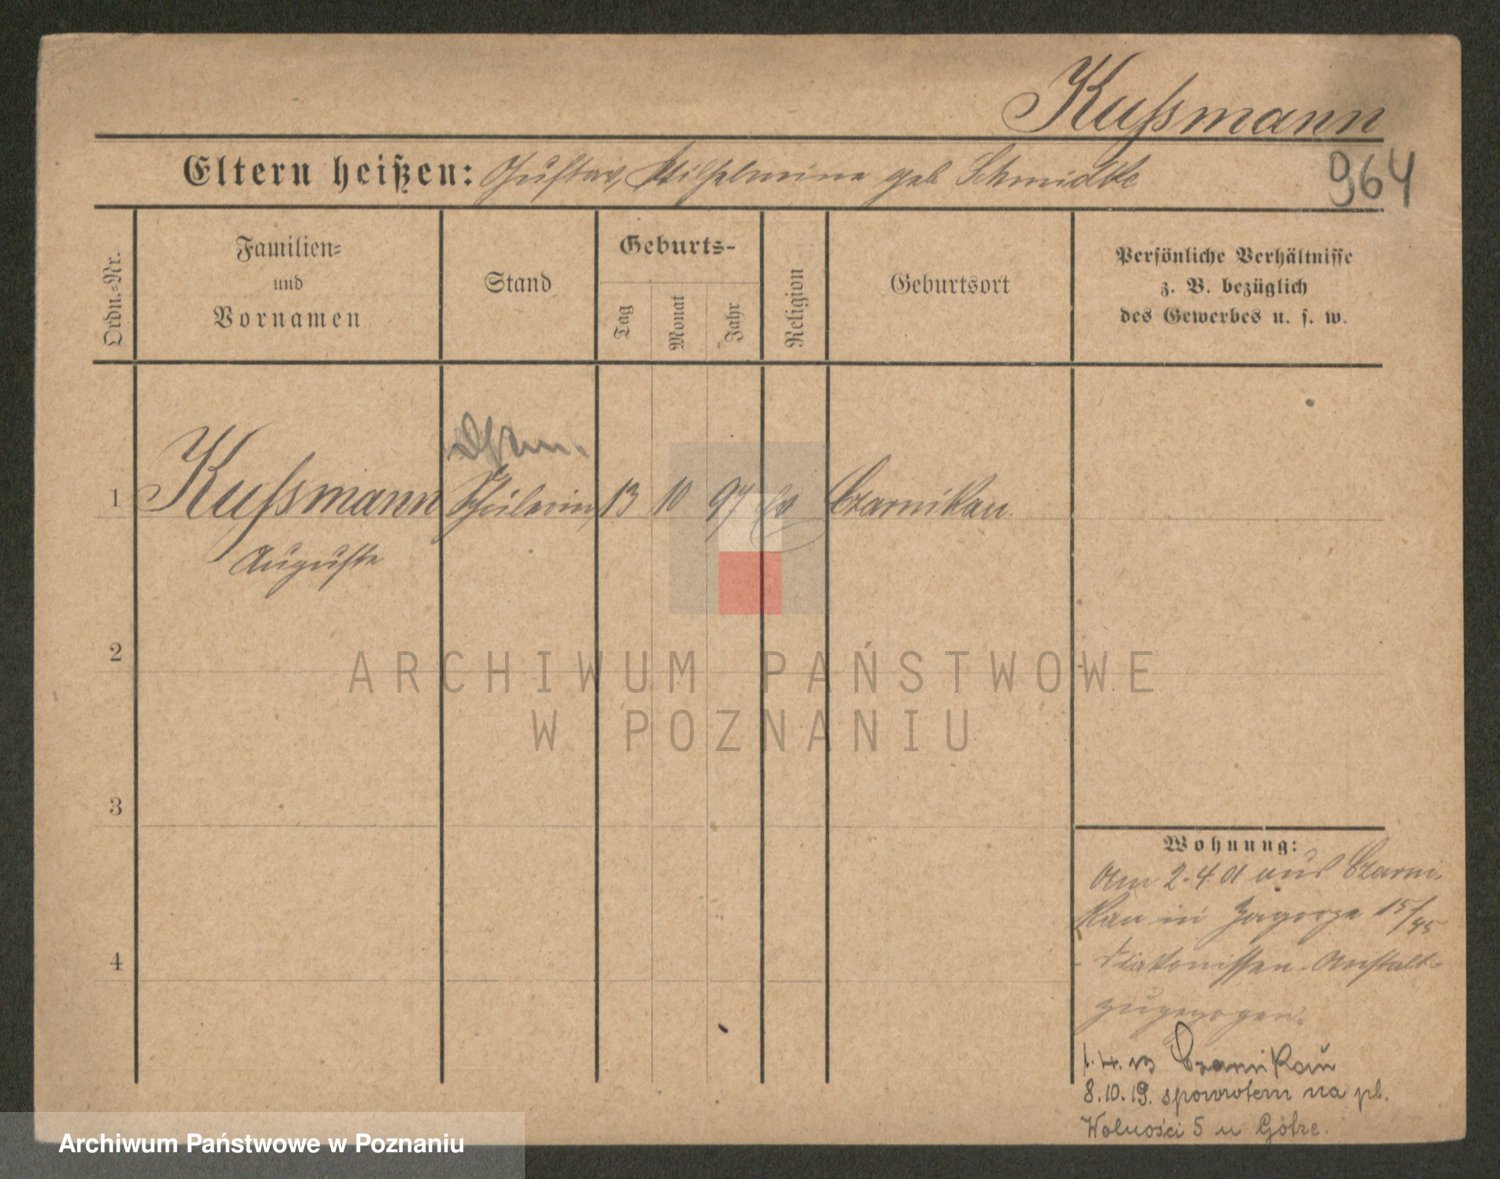 Kußmann
Eltern heißen: Gustav, Wilhelmine geb Schmidtke
964
Ordn.-Nr.
Familien-
und
Vornamen
Stand
Geburts-
Tag
Monat
Jahr
Religion
Geburtsort
Persönliche Verhältnisse
z. B. bezüglich
des Gewerbes u. s. w.
1 Kußmann Schülerin 13 10 97 ev Czarnikau
Auguste
2
ARCHIWUM PAŃSTWOWE
W POZNANIU
3
4
Wohnung:
Am 2.4.01 aus Czarni-
kau in Zagorze
Diakonissen-Anstalt
zugezogen.
1.4.13 Czarnikau
8.10.19. spowrotem na pl.
Wolności 5 u Götze.
Archiwum Państwowe w Poznaniu